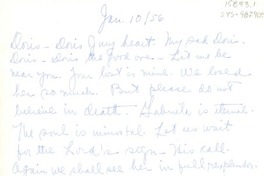 15893.1
sys-987905
Jan 10/56
Doris - Doris of my heart. My sad Doris.
Doris - Doris the good one - Let us be
near you. Your loss is mine. We loved
her so much. But please do not
believe in death. Gabriela is eternal.
The soul is immortal. Let us wait
for the Lord's reign - His call.
Again we shall see her in full resplendor.